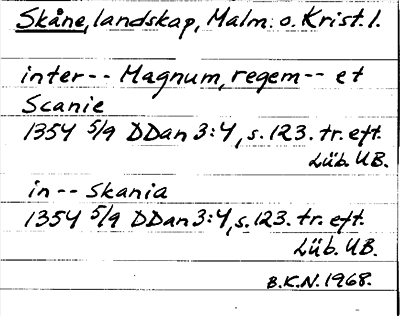 Skåne, landskap, Malm. o. Krist. l.
inter-- Magnum, regem-- et
Scanie
1354 5/9 DDan 3:4, s. 123. tr. eft.
Lüb. UB.
in-- Skania
1354 5/9 DDan 3:4, s. 123. tr. eft.
Lüb. UB.
B.K.N. 1968.